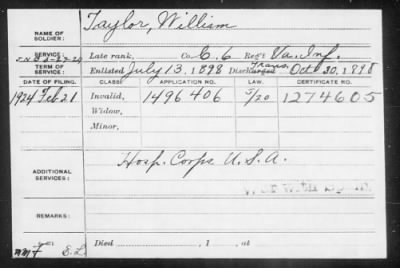 NAME OF SOLDIER: Taylor, William
SERVICE: Late rank, Co. C. 6 Reg't Va. Inf.
TERM OF SERVICE: Enlisted July 13, 1898 Discharged Trans. Oct 30, 1898
DATE OF FILING. CLASS. APPLICATION NO. LAW. CERTIFICATE NO.
1924 Feb 21 Invalid, 1496406 5/20 1274605
Widow,
Minor,
ADDITIONAL SERVICES: Hosp. Corps U.S.A.
REMARKS:
Died , 1 , at
E.L.